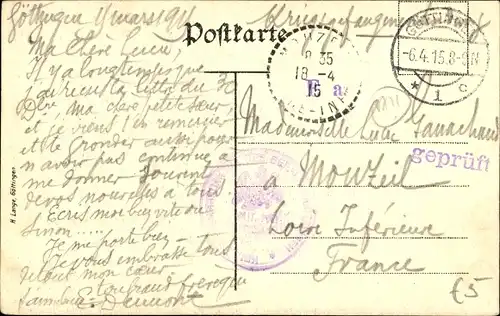 Göttingen 11 mars 1915
Postkarte
Kriegsgefangen
Ma Chère Lucie,
Il y a longtemps que
j'ai reçu ta lettre du 30
Dbre, ma chère petite sœur,
et je viens t'en remercier
et te gronder aussi pour
n'avoir pas continué à
me donner souvent
de vos nouvelles à tous.
Écris moi bien vite ou
sinon.....
Je me porte bien
Je vous embrasse tous
de tout mon cœur
Ton grand frère qui
t'aime E.
H. Lange, Göttingen
MOUZEIL
8 35
18-4
15
F. a.
GÖTTINGEN
-6.4.15.8-9N
* 1 c
Mademoiselle Lucie
geprüft
à Mouzeil
Loire Inférieure
France
£5